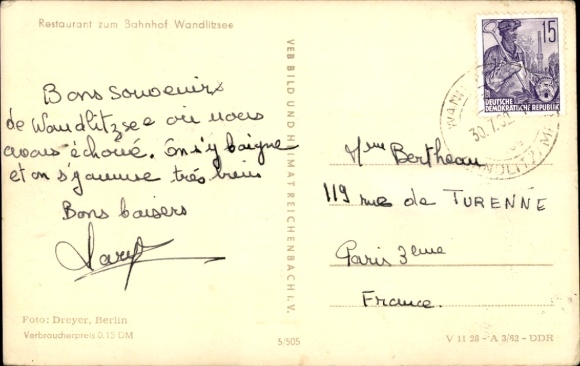 Restaurant zum Bahnhof Wandlitzsee
Bons souvenirs
de Wandlitzsee où nous
avons échoué. On s'y baigne
et on s'y amuse très bien
Bons baisers
VEB BILD UND HEIMAT REICHENBACH I. V.
15
DEUTSCHE
DEMOKRATISCHE REPUBLIK
30.7.62
Mme Bertheau
119 rue de TURENNE
Paris 3eme
France.
Foto: Dreyer, Berlin
Verbraucherpreis 0,15 DM
5/505
V 11 28 - A 3/62 - DDR